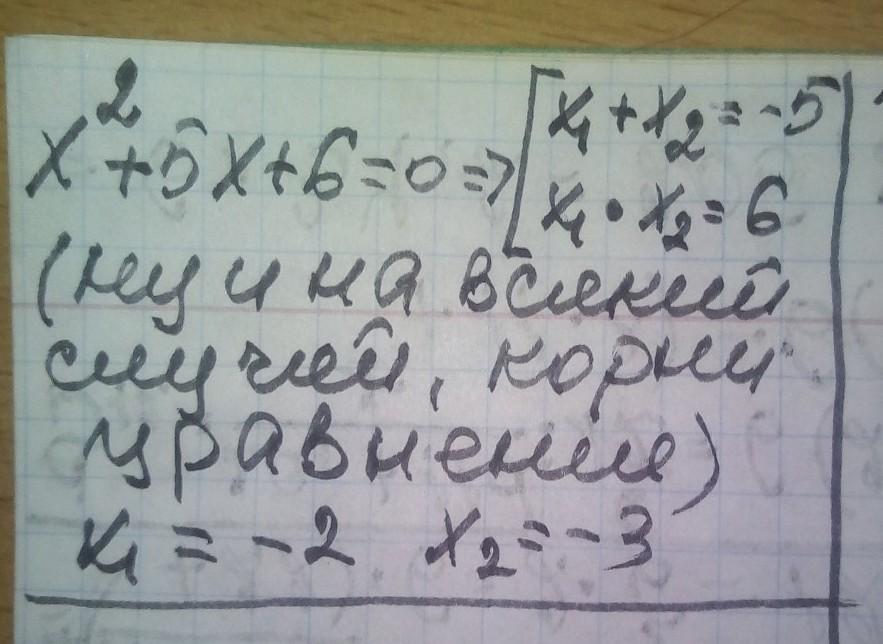 x²+5x+6=0 => [x₁+x₂=-5
x₁·x₂=6
(ну и на всякий
случай, корни
уравнение)
x₁=-2 x₂=-3